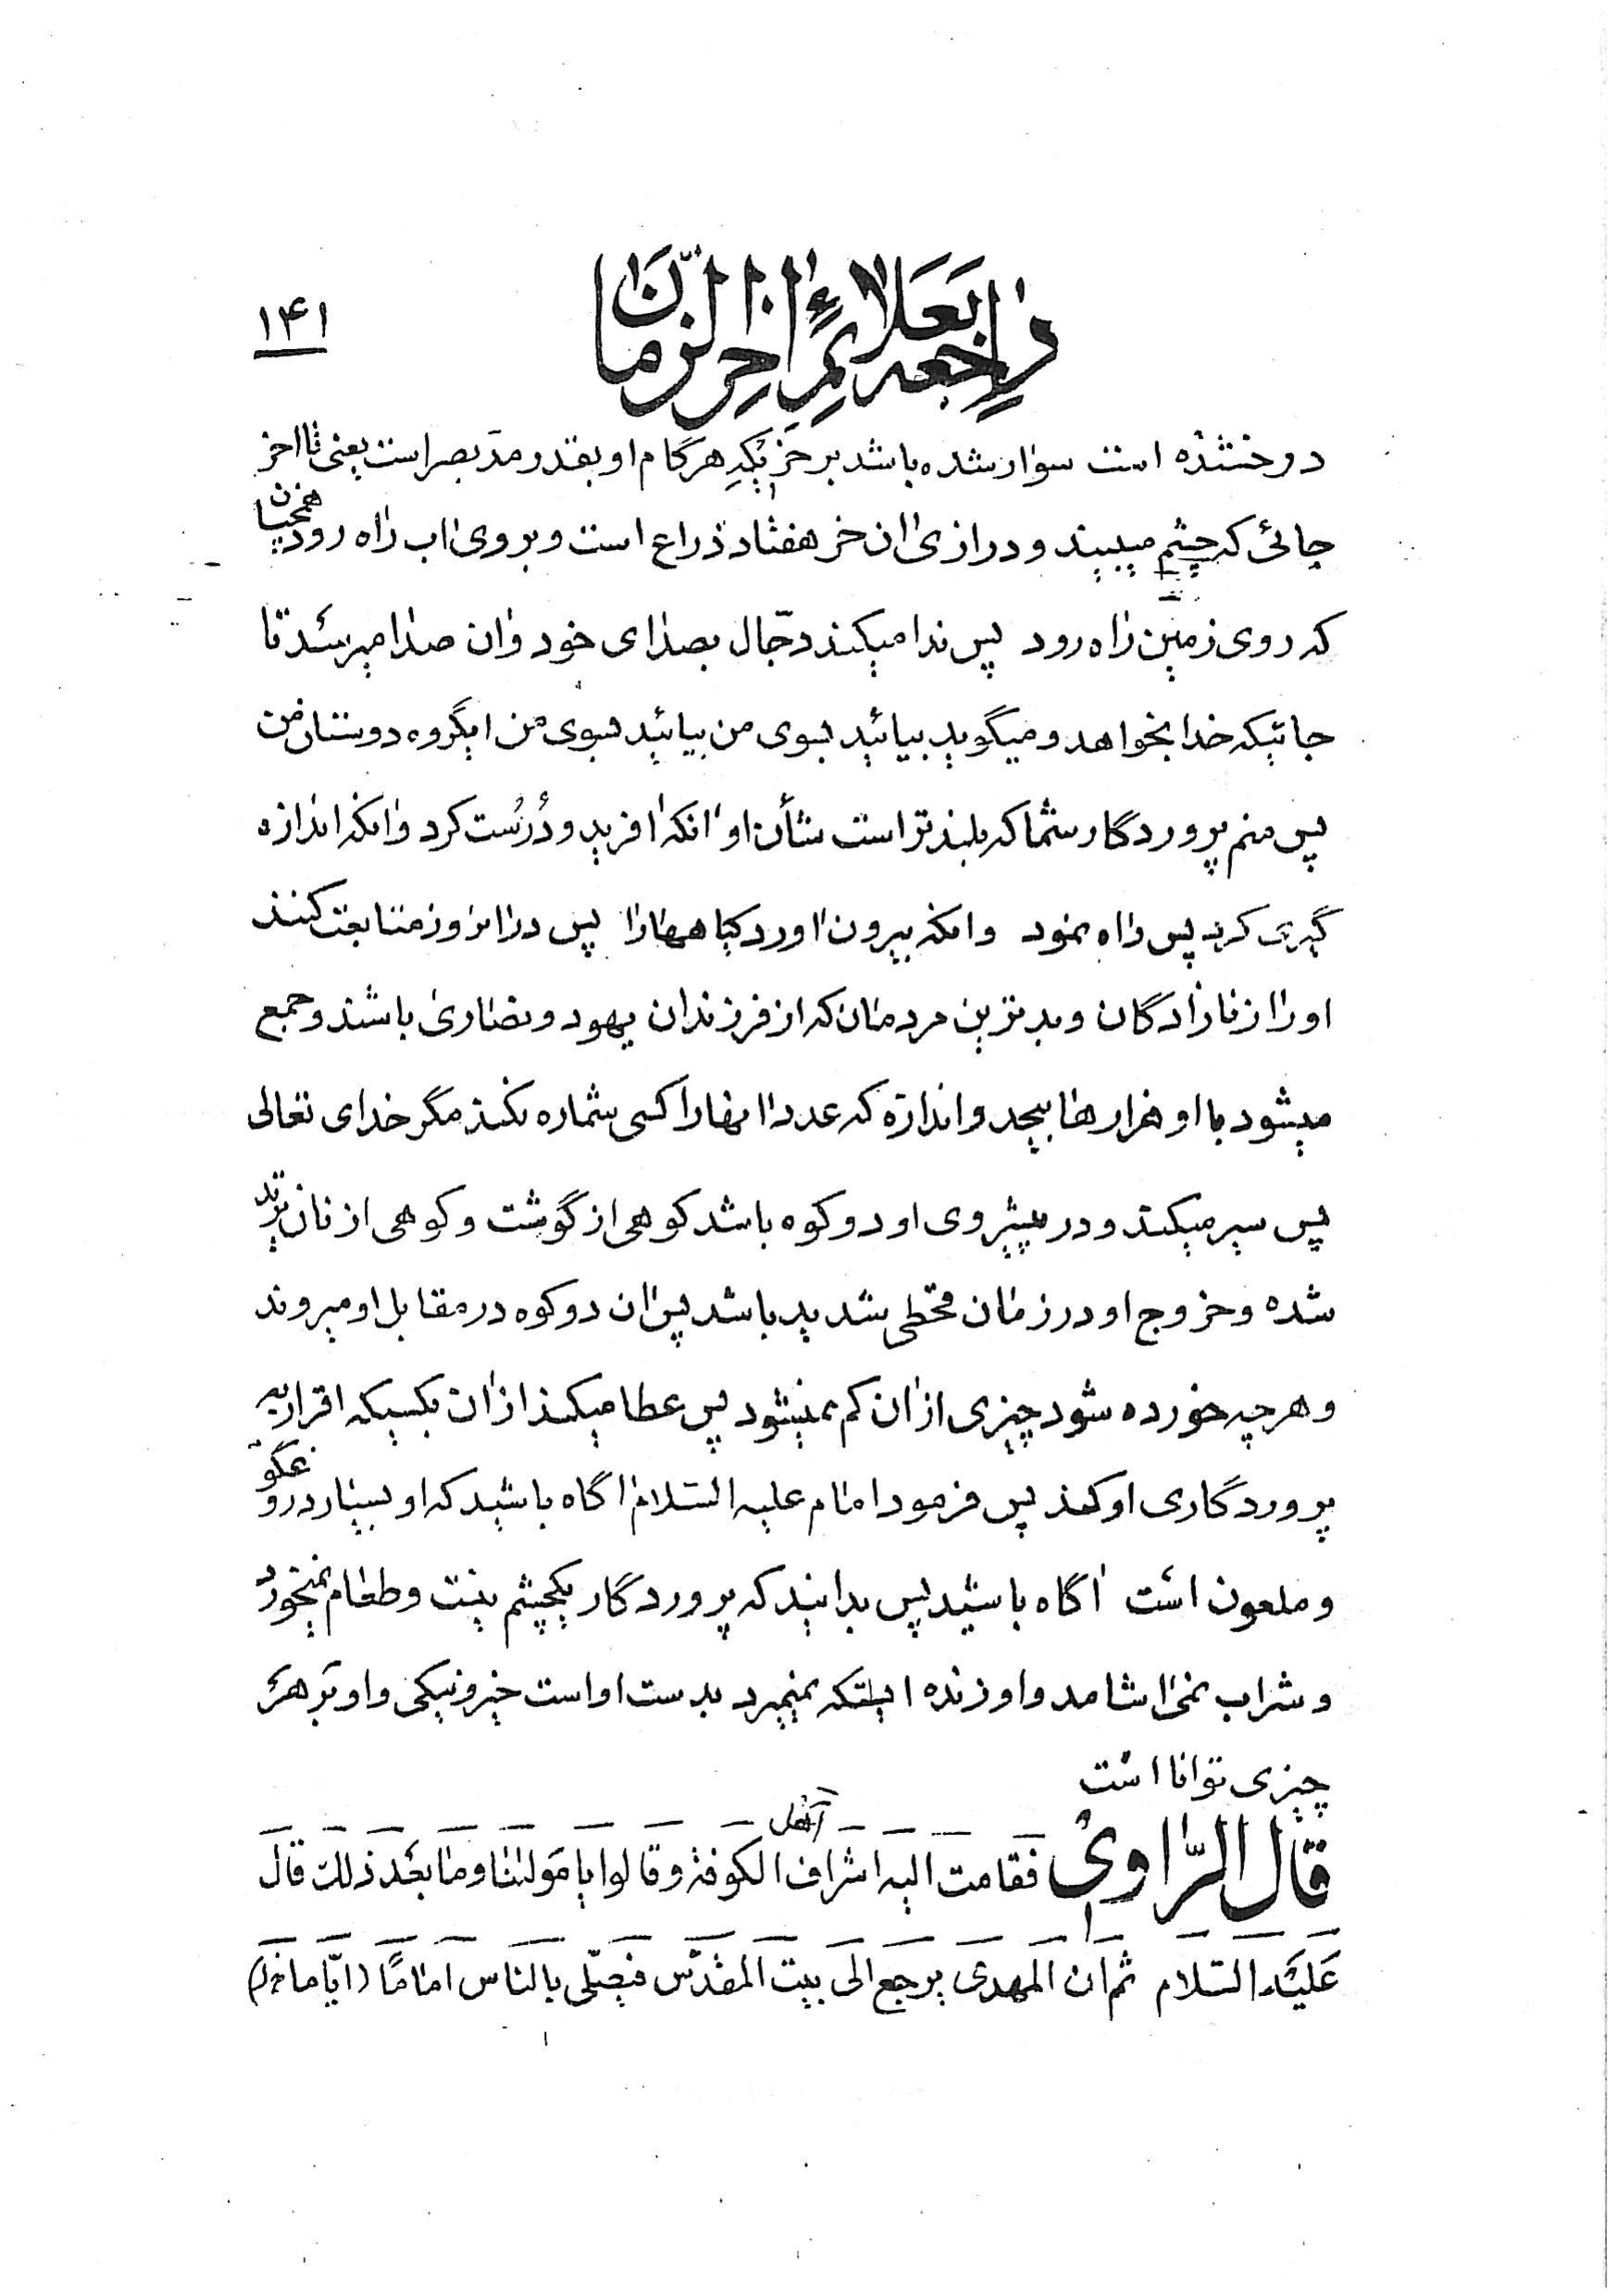 راجعه بعلائم اٰخر الزّمان
۱۴۱
درخشنده است سوار شده باشد بر خریکه هر گام او بقدر مدّ بصر است یعنی تا اخر
جائی که چشم میبیند و درازی اٰن خر هفتاد ذراع است و بروی اب راه رود همچنان
که روی زمین راه رود پس ندا میکند دجّال بصدای خود و ان صدا میرسد تا
جائیکه خدا بخواهد و میگوید بیائید بسوی من بیائید بسوی من ایگروه دوستان من
پس منم پروردگار شما که بلندتر است شأن او اٰنکه اٰفرید و دُرُست کرد و انکه اندازه
گیری کرد پس راه نمود و انکه بیرون اٰورد گیاهها را پس در انروز متابعت کنند
او را زنازادگان و بدترین مردمان که از فرزندان یهود و نصاری باشند و جمع
میشود با او هزارها بیحد و اندازه که عدد انها را کسی شماره نکند مگر خدای تعالی
پس سیر میکند و در پیشروی او دو کوه باشد کوهی از گوشت و کوهی از نان ترید
شده و خروج او در زمان قحطی شدید باشد پس اٰن دو کوه در مقابل او میروند
و هر چه خورده شود چیزی از ان کم نمیشود پس عطا میکند از اٰن بکسیکه اقرار به
پروردگاری او کند پس فرمود امام علیه السّلام اٰگاه باشید که او بسیار دروغگو
و ملعون است اٰگاه باشید پس بدانید که پروردگار یکچشم نیست و طعام نمیخورد
و شراب نمی اٰشامد و او زنده ایستکه نمیمیرد بدست او است خیر و نیکی و او بر هر
چیزی توانا است
قال الرّاوی فقامت الیه اشراف اهل الکوفة و قالوا یا مولٰینا و ما بعد ذلک قال
علیه السّلام ثم ان المهدی یرجع الی بیت المقدّس فیصلّی بالناس اماماً (ایّاما خل)